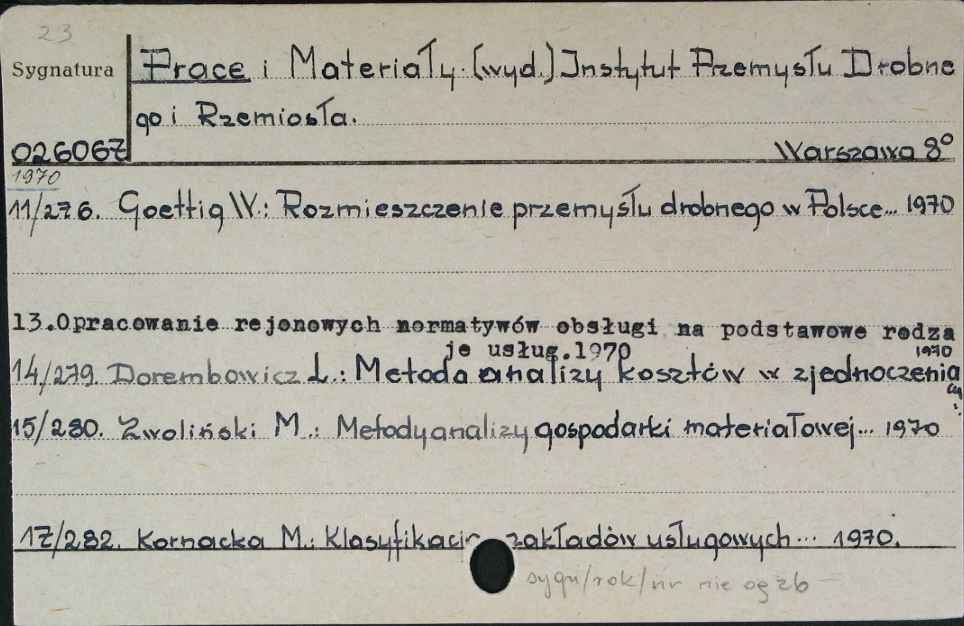 23
Sygnatura Prace i Materiały. (wyd.) Instytut Przemysłu Drobne
go i Rzemiosła.
026067 Warszawa 8°
1970
11/276. Goettig W.: Rozmieszczenie przemysłu drobnego w Polsce... 1970
13.Opracowanie rejonowych normatywów obsługi na podstawowe rodza
je usług.1970
1970
14/279. Dorembowicz L.: Metoda analizy kosztów w zjednoczenia
15/280. Zwoliński M.: Metody analizy gospodarki materiałowej... 1970
17/282. Kornacka M.: Klasyfikacja zakładów usługowych... 1970.
sygn/rok/nr nie og zb